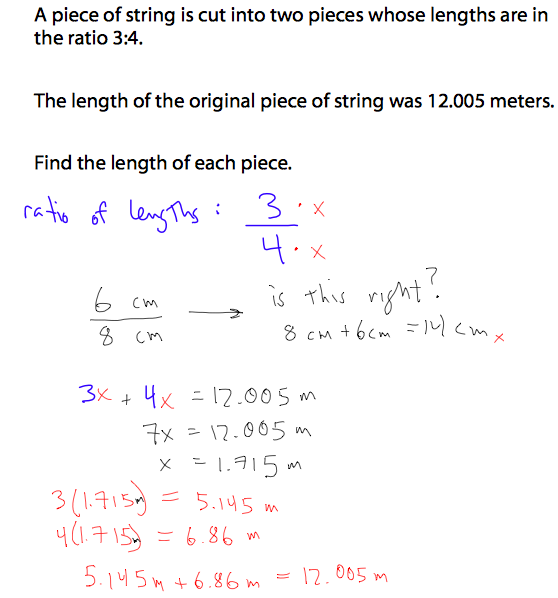 A piece of string is cut into two pieces whose lengths are in
the ratio 3:4.
The length of the original piece of string was 12.005 meters.
Find the length of each piece.
ratio of lengths : 3 · x
4 · x
6 cm → is this right?
8 cm 8 cm + 6cm = 14 cm x
3x + 4x = 12.005 m
7x = 12.005 m
x = 1.715 m
3(1.715m) = 5.145 m
4(1.715m) = 6.86 m
5.145m + 6.86 m = 12.005 m